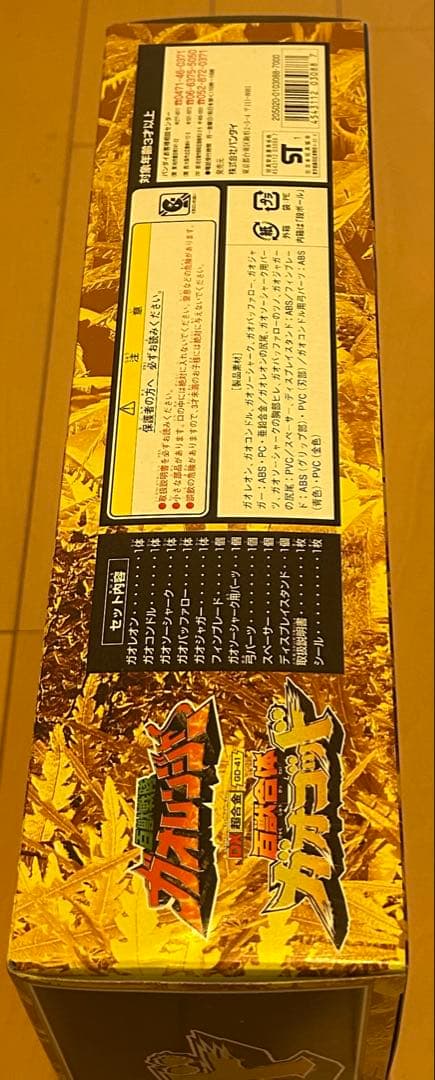 百獣戦隊
ガオレンジャー
DX超合金 GD-41
百獣合体
ガオゴッド
セット内容
ガオレオン・・・・・・・1体
ガオコンドル・・・・・・1体
ガオソーシャーク・・・・1体
ガオバッファロー・・・・1体
ガオジャガー・・・・・・1体
フィンブレード・・・・・1個
ガオソーシャーク用パーツ・1個
弓パーツ・・・・・・・・1個
スペーサー・・・・・・・1個
ディスプレイスタンド・・1個
取扱説明書・・・・・・・1枚
シール・・・・・・・・・1枚
注意
保護者の方へ 必ずお読みください。
●取扱説明書を必ずお読みください。
●小さな部品があります。口の中には絶対に入れないでください。窒息などの危険があります。
●誤飲の危険がありますので、3才未満のお子様には絶対に与えないでください。
[製品素材]
ガオレオン、ガオコンドル、ガオソーシャーク、ガオバッファロー、ガオジャ
ガー：ABS・PC・亜鉛合金／ガオレオンの尻尾、ガオソーシャーク用パー
ツ、ガオソーシャークの胸部ヒレ、ガオバッファローのツノ、ガオジャガー
の尻尾：PVC／スペーサー、ディスプレイスタンド：ABS／フィンブレー
ド：ABS（グリップ部）・PVC（刃部）／ガオコンドル用弓パーツ：ABS
（青色）・PVC（金色）
紙
外箱
プラ
袋 PE
内箱は「段ボール」
対象年齢3才以上
バンダイお客様相談センター
☎0471-46-0371
☎06-6375-5050
☎052-872-0371
発売元
株式会社バンダイ
205020-0103088-7000
4543112 03088 7
ST